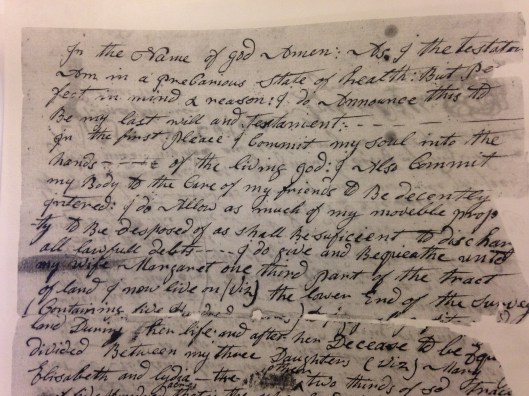 In the Name of god Amen: As I the testator
Am in a precarious State of health: But Pe
fect in mind & reason: I do Announce this to
Be my last will and testament: - - -
In the first Pleace I Commit my soul into the
hands - - - of the living god: I Also Commit
my Body to the Care of my friends to Be decently
intered: I do Allow as much of my moveble prop
ty to Be desposed of as shall Be suficient to dischar
all lawfull debts - - - I do give and Bequieathe unto
my wife Margaret one third part of the tract
of land I now live on (Viz) the lower End of the Survey
( Containing five
land During her life and after her Decease to be Equ
divided Between my three Daughters (Viz) Mary
Elisabeth and Lydia - the other two thirds of sd